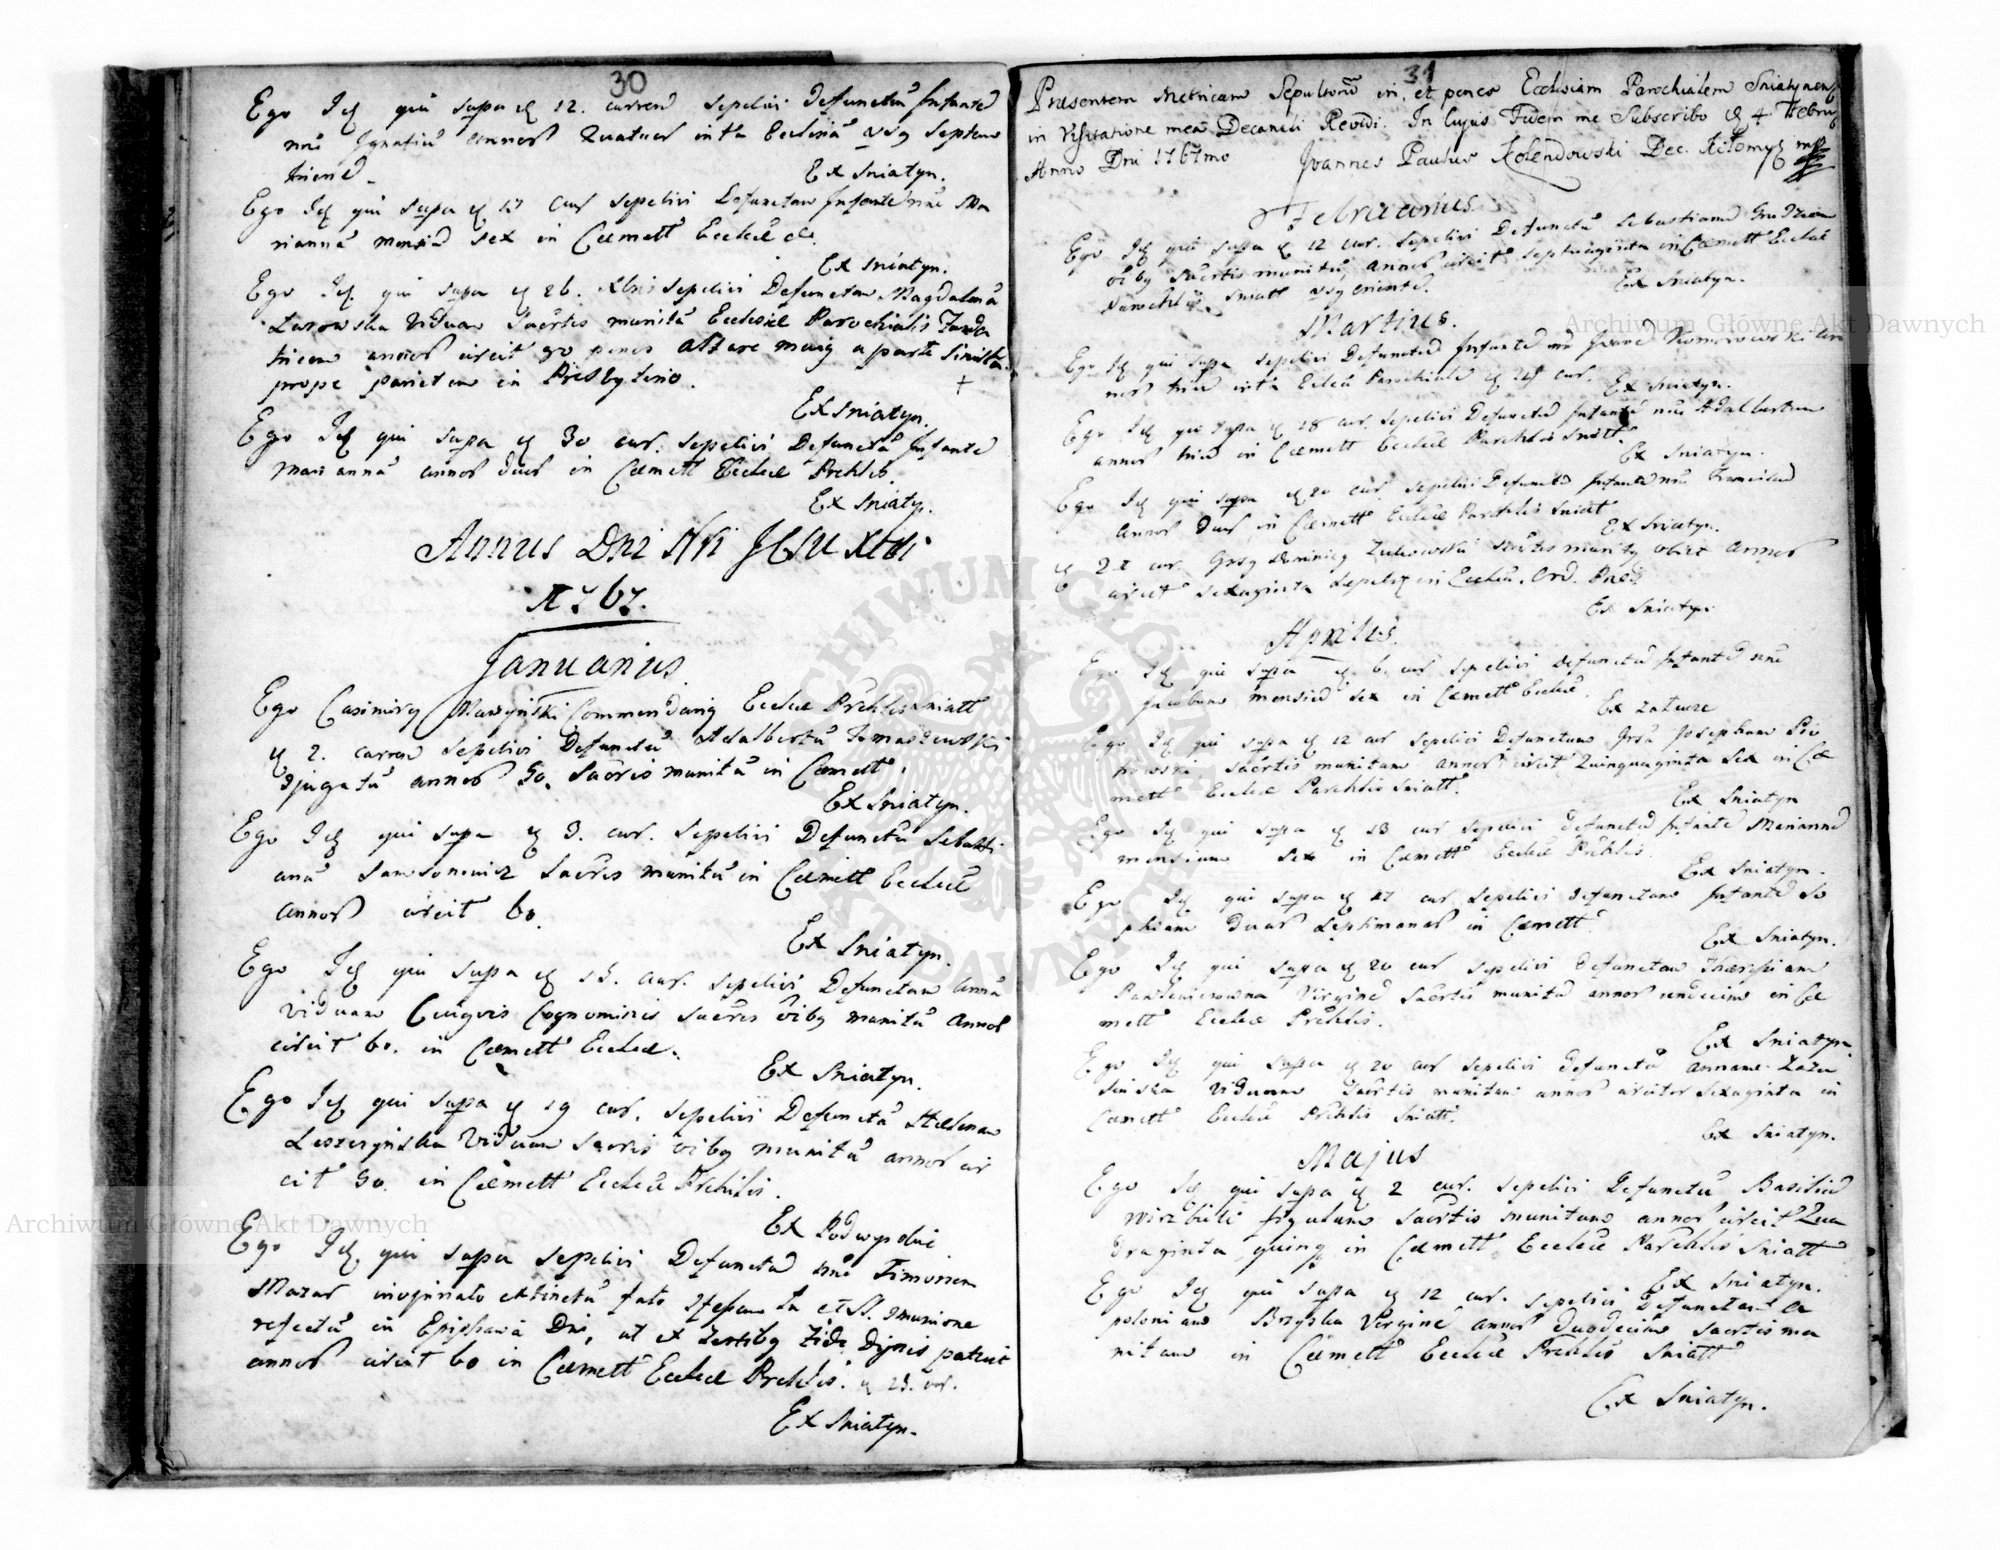 30
Ego Id qui supa d 12. curren sepelivi Defunctũ Infante
nõe Ignatiũ annor Quatuor intra Eccliam
Ex Sniatyn.
Ego Id qui supa d 17 cur sepelivi Defunctam Infante nõe Ma
riannã mensiũ sex in Cæmett Eccleæ
Ex Sniatyn.
Ego Id qui supa d 26. Xbris sepelivi Defunctam Magdalenã
viduam Sacrtis munitã Ecclesiæ Parochialis
tricem annor circit 90 penes Altare maig a parte Sinistra
prope parietem in Presbyterio.
Ex Sniatyn.
Ego Id qui supa d 30 cur. sepelivi Defunctã Infante
Mariannã annor duor in Cæmett Eccleæ Prchlis.
Ex Sniatyn.
Annus Dni Nri JEsu Xsti
1767.
Januarius.
Ego Casimirg Mawyński Commendarig Eccleæ Prchlis Sniatt
d 2. curren sepelivi Defunctũ Adalbertũ Tomaszewski
9jugatũ annor 50. Sacris munitũ in Cæmett.
Ex Sniatyn.
Ego Id qui supa d 3. cur. sepelivi Defunctũ Sebasti
anũ Samsonowicz Sacris munitũ in Cæmett Eccleæ
annor circit 60.
Ex Sniatyn.
Ego Id qui supa d 15. cur. sepelivi Defunctam Annã
viduam Cuigvis Cognominis Sacris oibg munitã Annor
circit 60. in Cæmett Eccleæ.
Ex Sniatyn.
Ego Id qui supa d 19 cur. sepelivi Defunctã Helenam
Leszczyńska Viduam Sacris oibg munitã annor cir
cit 50. in Cæmett Eccleæ Prchlis.
Ex Podwysokie
Ego Id qui supa sepelivi Defunctũ nõe Timonem
Mazur inopinato extinctũ fato et SS. 9munione
refectũ in Epiphania Dni, ut ex Testibg Fide Dignis patuit
annor circit 60 in Cæmett Eccleæ Prchlis. d 23. cur.
Ex Sniatyn.
31
Præsentem Metricam Sepultorũ in, et penes Ecclesiam Parochialem Sniatynen
in Visitatione mea Decanali Revidi. In Cujus Fidem me Subscribo d 4 Febru
Anno Dni 1767mo Joannes Paulus Kolendowski Dec. Kołomyj mp
Februarius.
Ego Id qui supa d 12 cur. sepelivi Defunctũ Sebastianũ
oibg Sacrtis munitũ, annor circit septuaginta in Cæmett Eccleæ
Parochlis Sniatt
Ex Sniatyn.
Martius.
Ego Id qui supa sepelivi Defunctũ Infante nõe Komorowski an
nor trium intra Eccleã Parochiale d 14 cur.
Ex Sniatyn.
Ego Id qui supa d 18 cur. sepelivi Defunctũ Infante nõe Adalbertum
annor trium in Cæmett Eccleæ Parchlis Sniatt.
Ex Sniatyn.
Ego Id qui supa d 20 cur. sepelivi Defunctũ Infante nõe Franciscũ
annor duor in Cæmett Eccleæ Parchlis Sniatt
Ex Sniatyn.
d 21 cur. Grsg Dominicg Żukowski Sacrtis munitg obiit annor
circit sexaginta sepultg in Eccleæ. Ord. Præd.
Ex Sniatyn.
Aprilis.
Ego Id qui supa d 6. cur sepelivi Defunctũ Infante nõe
Jacobum mensiũ sex in Cæmett Eccleæ.
Ex Załucze
Ego Id qui supa d 12 cur sepelivi Defunctum Grsũ Josephum Pio
trowski Sacrtis munitum annor circit Quinquaginta sex in Cæ
mett Eccleæ Parchlis Sniatt.
Ex Sniatyn
Ego Id qui supa d 13 cur sepelivi Defunctã Infante Mariannã
mensium sex in Cæmett Eccleæ Prchlis.
Ex Sniatyn.
Ego Id qui supa d 17 cur sepelivi Defunctam Infante So
phiam duar Septimanar in Cæmett.
Ex Sniatyn.
Ego Id qui supa d 20 cur sepelivi Defunctam Theresiam
Virgine Sacrtis munitã annor undecim in Cæ
mett Eccleæ Prchlis.
Ex Sniatyn.
Ego Id qui supa d 20 cur sepelivi Defunctã Annam
Viduam Sacrtis munitam annor circiter Sexaginta in
Cæmett Eccleæ Prchlis Sniatt.
Ex Sniatyn.
Majus
Ego Id qui supa d 2 cur. sepelivi Defunctũ Basiliũ
Wirzbicki figulum Sacrtis munitum annor circit Qua
draginta quinq in Cæmett Eccleæ Parchlis Sniatt
Ex Sniatyn.
Ego Id qui supa d 12 cur. sepelivi Defunctam A
poloniam Brzyska Virgine annor Duodecim Sacrtis mu
nitam in Cæmett Eccleæ Prchlis Sniatt
Ex Sniatyn.
Archiwum Główne Akt Dawnych
Archiwum Główne Akt Dawnych
ARCHIWUM GŁÓWNE AKT DAWNYCH